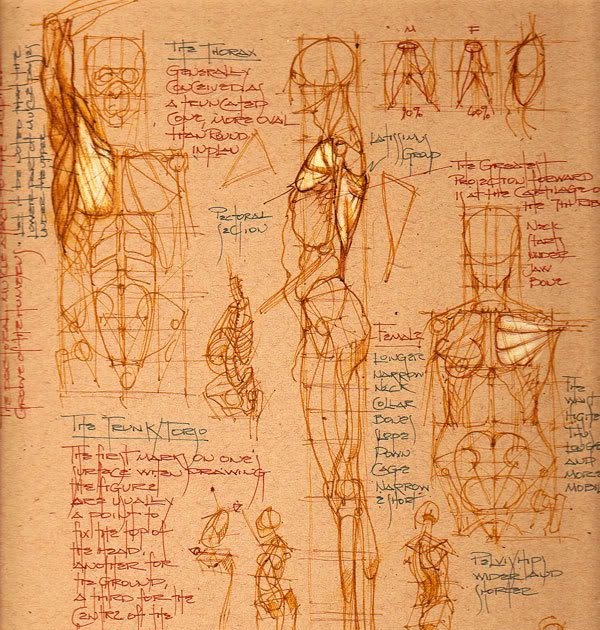 The Thorax
Generally
Conceived as
a truncated
cone, more oval
than round
in plan
M
F
90%
Latissimus
Group
Pectoral
Section
The Greatest
Projection forward
is at the cartilage of
the 7th rib
Neck
starts
under
jaw
bone
Female
Longer
narrow
neck
collar
bones
slope
down
cage
narrow
& short
The
waist
higher
thus
longer
and
more
mobil
The Trunk/Torso
The first mark on one's
surface when drawing
the figure
are usually
a point to
fix the top of
the head,
another for
the ground,
a third for the
centre of the
Pelvis/hip
wider and
shorter
Groove of the humerus